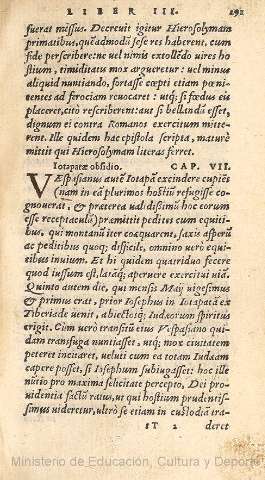 LIBER III. 291
fuerat missus. Decreuit igitur Hierosolymam
primatibus, quēadmodū sese res haberent, cum
fide perscribere: ne uel nimis extollēdo uires ho
stium, timiditatis mox argueretur: uel minus
aliquid nuntiando, fortasse cœpti etiam pœni
tentes ad ferociam reuocaret: utq; si fœdus eis
placeret, citò rescriberent: aut si bellandū esset,
dignum ei contra Romanos exercitum mitte-
rent. Ille quidem hac epistola scripta, maturè
mittit qui Hierosolymam literas ferret.
Iotapatæ obsidio. CAP. VII.
VEspasianus autē Iotapā excindere cupiēs
(nam in eā plurimos hostiū refugisse co
gnouerat, & præterea ualdissimū hoc eorum
esse receptaculū) præmittit pedites cum equiti
bus, qui montanū iter coæquarent, saxis asperū
ac peditibus quoq; difficile, omnino verò equi
tibus inuium. Et hi quidem quatriduo fecere
quod iussum est, latāq; aperuere exercitui uiā.
Quinto autem die, qui mensis Maij uigesimus
& primus erat, prior Iosephus in Iotapatā ex
Tiberiade uenit, abiectosq; Iudæorum spiritus
erigit. Cùm verò transitū eius Vespasiano qui-
dam transfuga nuntiasset, utq; mox ciuitatem
peteret incitaret, ueluti cum ea totam Iudæam
capere posset, si Iosephum subiugasset: hoc ille
nūtio pro maxima felicitate percepto, Dei pro
uidentia factū ratus, ut qui hostium prudentis-
simus uideretur, ultrò se etiam in custodiā tra-
IT 2 deret
Ministerio de Educación, Cultura y Deporte